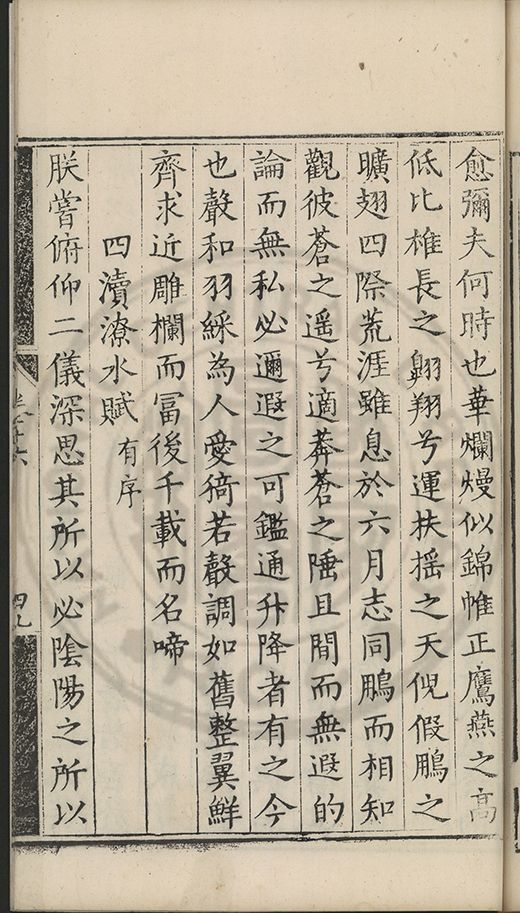 愈彌夫何時也華爛熳似錦帷正鷹燕之高
低比椎長之翺翔兮運扶搖之天倪假鵬之
曠翅四際荒涯雖息於六月志同鵬而相知
觀彼蒼之遥兮適莽蒼之陲且閒而無遐的
論而無私必邇遐之可鑑通升降者有之今
也聲和羽綵為人愛猗若聲調如舊整翼鮮
齊求近雕欄而冨後千載而名啼
四瀆潦水賦有序
朕嘗俯仰二儀深思其所以必陰陽之所以
四九